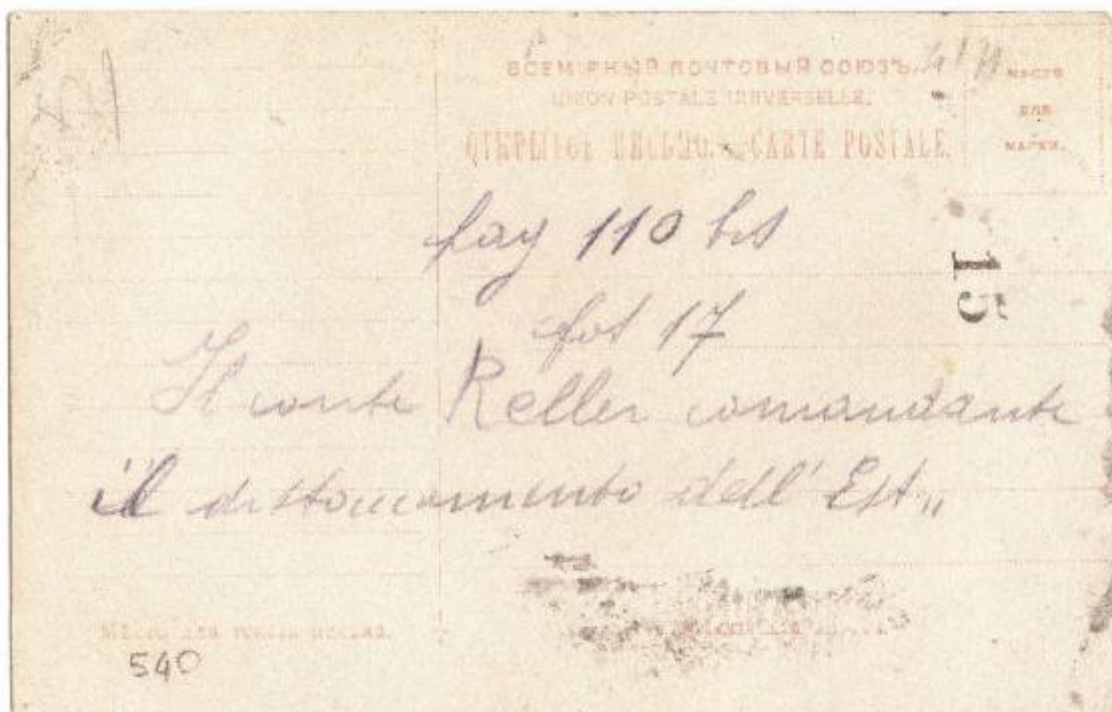 ВСЕМІРНЫЙ ПОЧТОВЫЙ СОЮЗЪ.
UNION POSTALE UNIVERSELLE.
ОТКРЫТОЕ ПИСЬМО. — CARTE POSTALE.
МѢСТО
ДЛЯ
МАРКИ.
fag 110 bis
15
fot 17
Il conte Keller comandante
il distaccamento dell'Est„
540